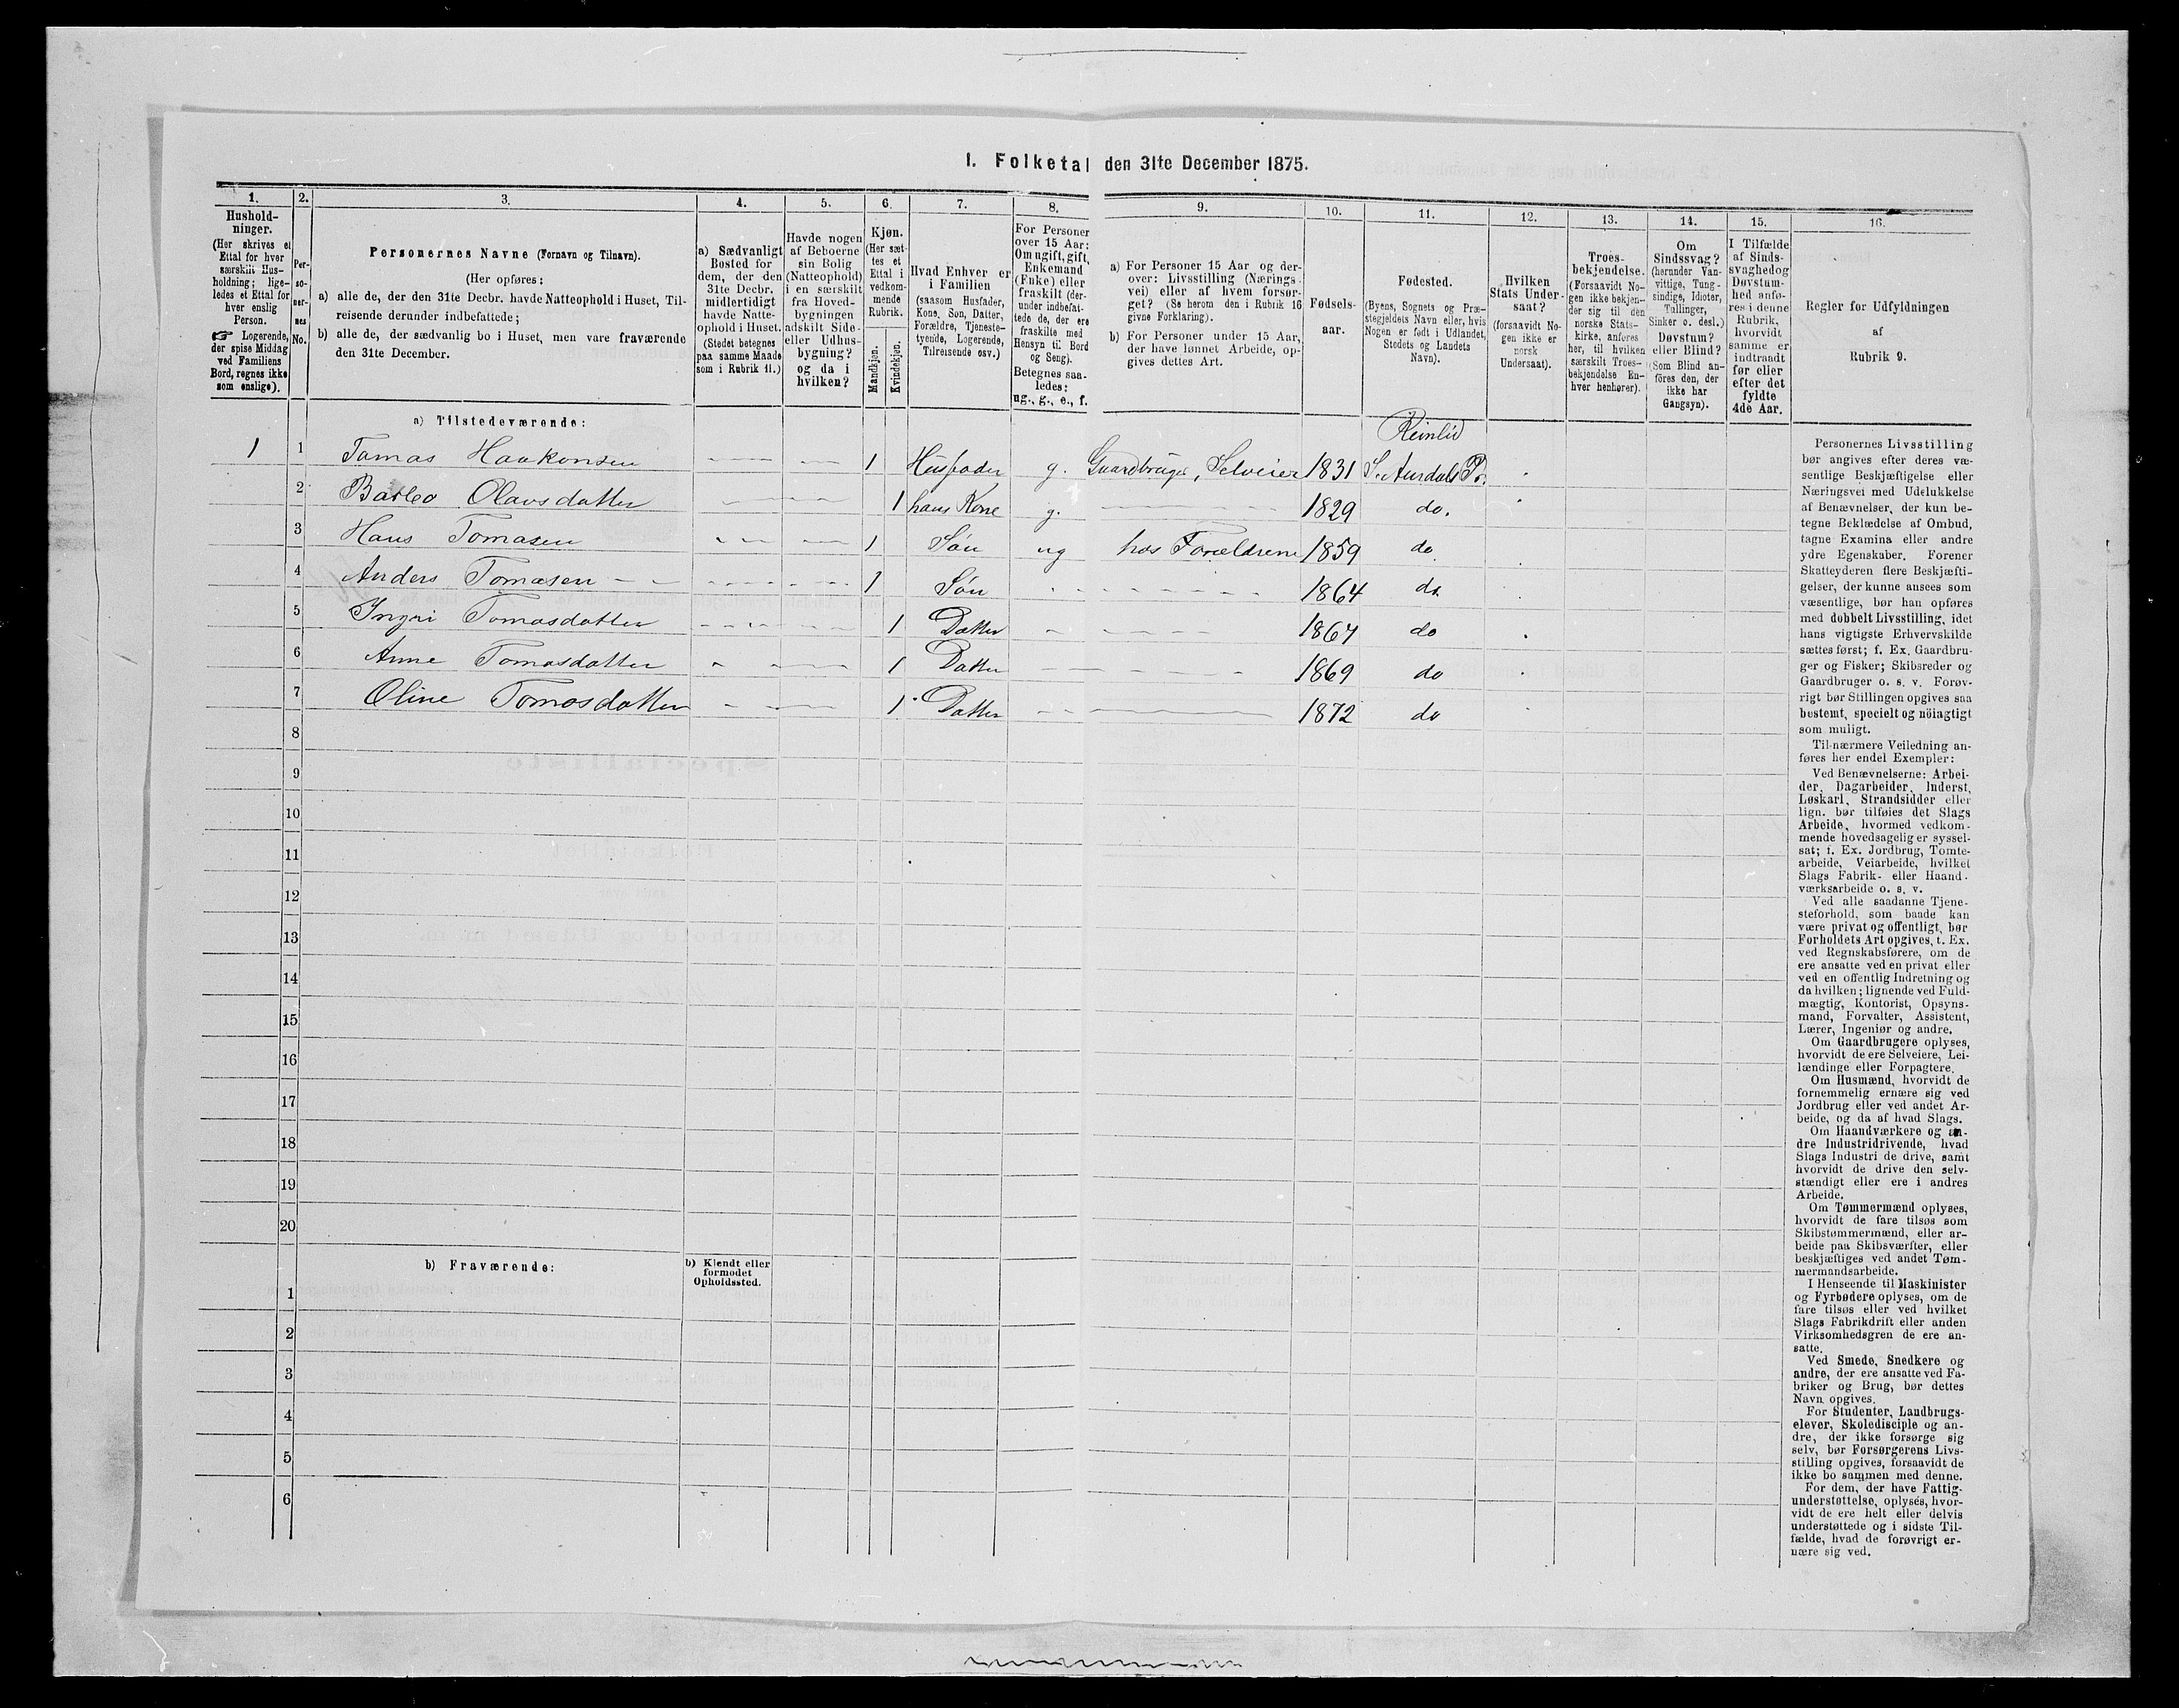 I. Folketal den 31te December 1875.
1.
Hushold-
ninger.
(Her skrives et
Ettal for hver
særskilt Hus-
holdning; lige-
ledes et Ettal for
hver enslig
Person.
☞ Logerende,
der spise Middag
ved Familiens
Bord, regnes ikke
som enslige).
2.
Per-
so-
ner-
nes
No.
3.
Personernes Navne (Fornavn og Tilnavn).
(Her opføres:
a) alle de, der den 31te Decbr. havde Natteophold i Huset, Til-
reisende derunder indbefattede;
b) alle de, der sædvanlig bo i Huset, men vare fraværende
den 31te December.
4.
a) Sædvanligt
Bosted for
dem, der den
31te Decbr.
midlertidigt
havde Natte-
ophold i Huset.
(Stedet betegnes
paa samme Maade
som i Rubrik 11.)
5.
Havde nogen
af Beboerne
sin Bolig
(Natteophold)
i en særskilt
fra Hoved-
bygningen
adskilt Side-
eller Udhus-
bygning?
og da i
hvilken?
6.
Kjøn.
(Her sæt-
tes et
Ettal i
vedkom-
mende
Rubrik.
Mandkjøn.
Kvindekjøn.
7.
Hvad Enhver er
i Familien
(saasom Husfader,
Kone, Søn, Datter,
Forældre, Tjeneste-
tyende, Logerende,
Tilreisende osv.)
8.
For Personer
over 15 Aar:
Om ugift, gift,
Enkemand
(Enke) eller
fraskilt (der-
under indbefat-
tede de, der ere
fraskilte med
Hensyn til Bord
og Seng).
Betegnes saa-
ledes:
ug., g., e., f.
9.
a) For Personer 15 Aar og der-
over: Livsstilling (Nærings-
vei) eller af hvem forsør-
get? (Se herom den i Rubrik 16
givne Forklaring).
b) For Personer under 15 Aar,
der have lønnet Arbeide, op-
gives dettes Art.
10.
Fødsels-
aar.
11.
Fødested.
(Byens, Sognets og Præ-
stegjeldets Navn eller, hvis
Nogen er født i Udlandet,
Stedets og Landets
Navn).
12.
Hvilken
Stats Under-
saat?
(forsaavidt No-
gen ikke er
norsk
Undersaat).
13.
Troes-
bekjendelse.
(Forsaavidt No-
gen ikke bekjen-
der sig til den
norske Stats-
kirke, anføres
her, til hvilken
særskilt Troes-
bekjendelse En-
hver henhører).
14.
Om
Sindssvag?
(herunder Van-
vittige, Tung-
sindige, Idioter,
Tullinger,
Sinker o. desl.)
Døvstum?
eller Blind?
(Som Blind an-
föres den, der
ikke har
Gangsyn).
15.
I Tilfælde
af Sinds-
svaghed og
Døvstum-
hed anfø-
res i denne
Rubrik,
hvorvidt
samme er
indtraadt
før eller
efter det
fyldte
4de Aar.
16.
Regler for Udfyldningen
af
Rubrik 9.
a) Tilstedeværende:
Reinlid
1 1 Tomas Haakonsen 1 Husfader g. Gaardbruger, Selveier 1831 S. Aurdals P.
2 Olavsdatter 1 hans Kone g. 1829 do.
3 Hans Tomasen 1 Søn ug hos Forældrene 1859 do
4 Anders Tomasen 1 Søn 1864 do.
5 Ingri Tomasdatter 1 Datter 1867 do
6 Anne Tomasdatter 1 Datter 1869 do
7 Oline Tomasdatter 1 Datter 1872 do
8
9
10
11
12
13
14
15
16
17
18
19
20
b) Fraværende:
b) Kjendt eller
formodet
Opholdssted.
1
2
3
4
5
6
Personernes Livsstilling
bør angives efter deres væ-
sentlige Beskjæftigelse eller
Næringsvei med Udelukkelse
af Benævnelser, der kun be-
tegne Beklædelse af Ombud,
tagne Examina eller andre
ydre Egenskaber. Forener
Skatteyderen flere Beskjæfti-
gelser, der kunne ansees som
væsentlige, bør han opføres
med dobbelt Livsstilling, idet
hans vigtigste Erhvervskilde
sættes først; f. Ex. Gaardbru-
ger og Fisker; Skibsreder og
Gaardbruger o. s. v. Forøv-
rigt bør Stillingen opgives saa
bestemt, specielt og nöiagtigt
som muligt.
Til nærmere Veiledning an-
føres her endel Exempler:
Ved Benævnelserne: Arbei-
der, Dagarbeider, Inderst,
Løskarl, Strandsidder eller
lign. bør tilføies det Slags
Arbeide, hvormed vedkom-
mende hovedsagelig er syssel-
sat; f. Ex. Jordbrug, Tomte-
arbeide, Veiarbeide, hvilket
Slags Fabrik- eller Haand-
værksarbeide o. s. v.
Ved alle saadanne Tjene-
steforhold, som baade kan
være privat og offentligt, bør
Forholdets Art opgives, t. Ex.
ved Regnskabsførere, om de
ere ansatte ved en privat eller
ved en offentlig Indretning og
da hvilken; lignende ved Fuld-
mægtig, Kontorist, Opsyns-
mand, Forvalter, Assistent,
Lærer, Ingeniør og andre.
Om Gaardbrugere oplyses,
hvorvidt de ere Selveiere, Lei-
lændinge eller Forpagtere.
Om Husmænd, hvorvidt de
fornemmelig ernære sig ved
Jordbrug eller ved andet Ar-
beide, og da af hvad Slags.
Om Haandværkere og an-
dre Industridrivende, hvad
Slags Industri de drive, samt
hvorvidt de drive den selv-
stændigt eller ere i andres
Arbeide.
Om Tømmermænd oplyses,
hvorvidt de fare tilsøs som
Skibstømmermænd, eller ar-
beide paa Skibsværfter, eller
beskjæftiges ved andet Tøm-
mermandsarbeide.
I Henseende til Maskinister
og Fyrbødere oplyses, om de
fare tilsøs eller ved hvilket
Slags Fabrikdrift eller anden
Virksomhedsgren de ere an-
satte.
Ved Smede, Snedkere og
andre, der ere ansatte ved Fa-
briker og Brug, bør dettes
Navn opgives.
For Studenter, Landbrugs-
elever, Skoledisciple og an-
dre, der ikke forsørge sig
selv, bør Forsørgerens Livs-
stilling opgives, forsaavidt de
ikke bo sammen med denne.
For dem, der have Fattig-
understøttelse, oplyses, hvor-
vidt de ere helt eller delvis
understøttede og i sidste Til-
fælde, hvad de forøvrigt er-
nære sig ved.